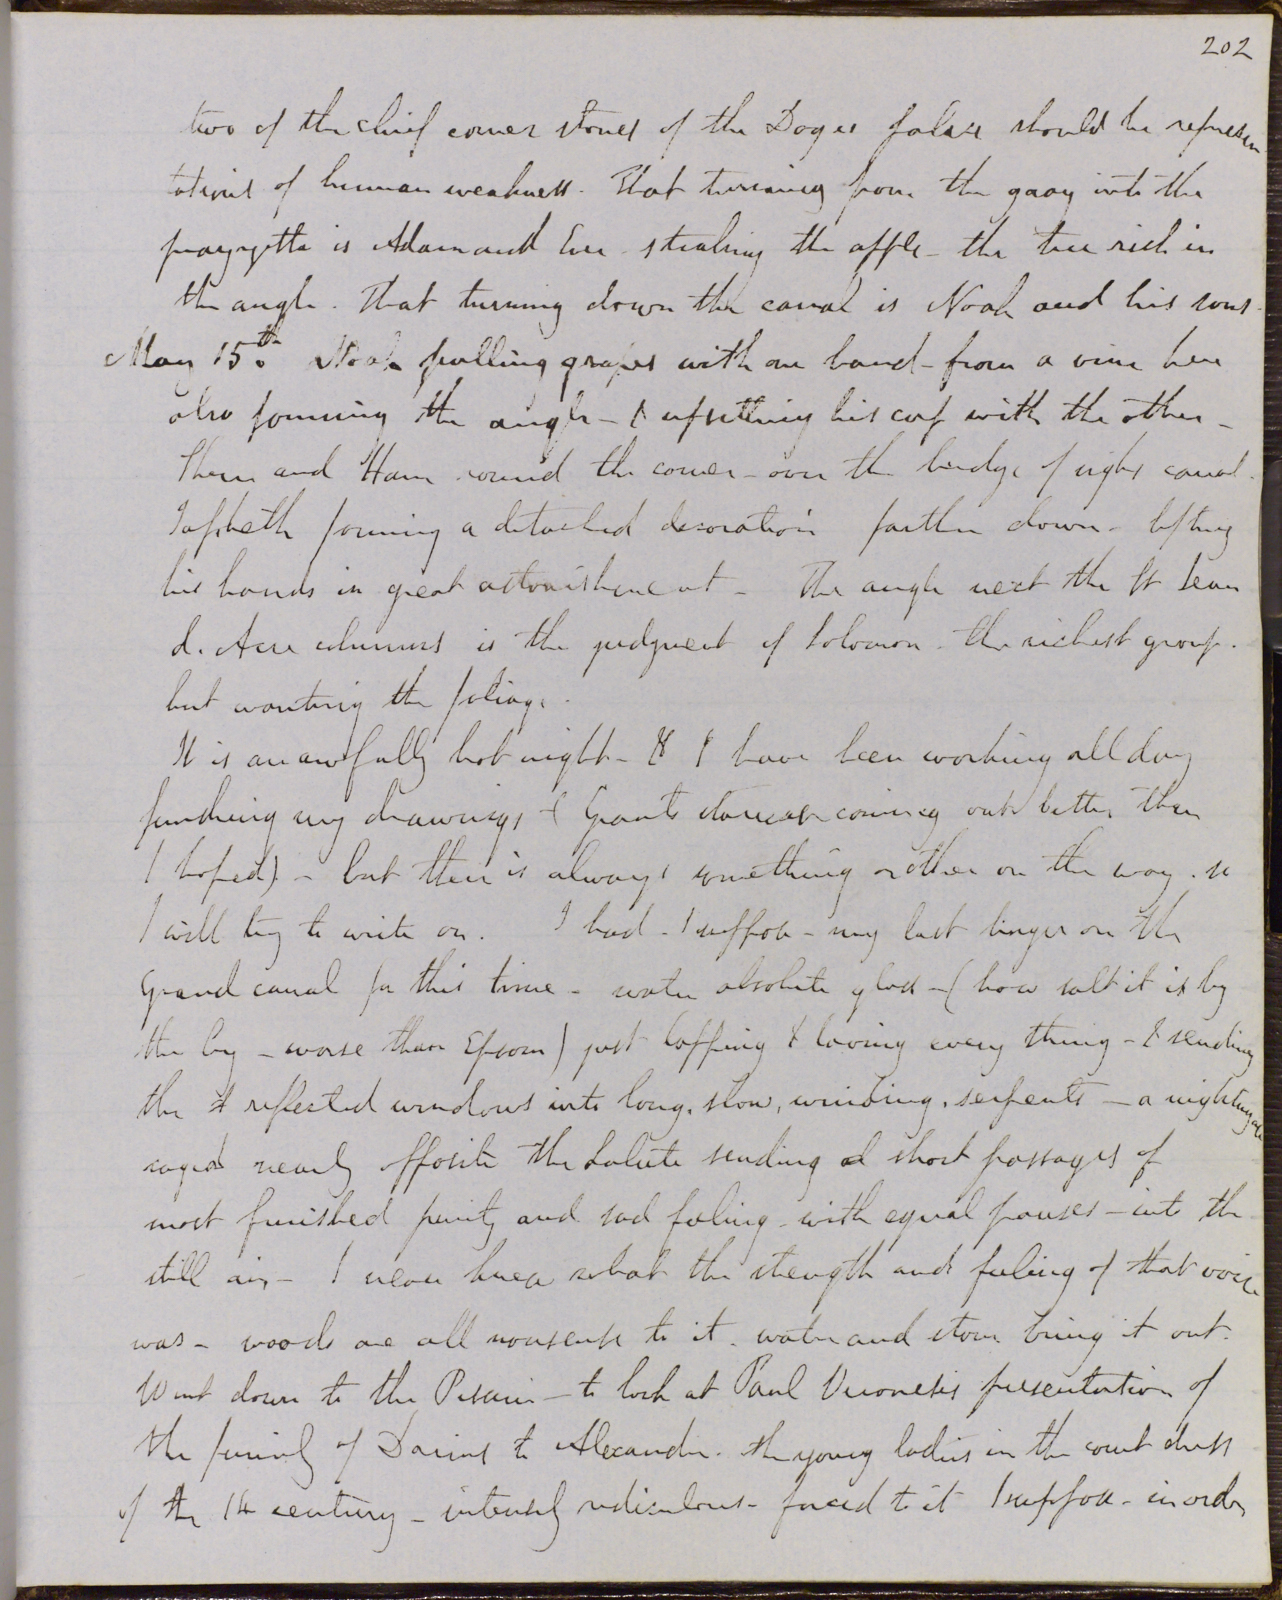 202
two of the chief corner stones of the Doges palace should be represen
tations of human weakness. That turning from the quay into the
piazzetta is Adam and Eve stealing the apple - the tree rich in
the angle. That turning down the canal is Noah and his sons.
May 15th. Noah pulling grapes with one hand - from a vine here
also forming the angle - & upsetting his cup with the other -
Shem and Ham round the corner - over the bridge of sighs canal.
Japheth forming a detached decoration farther down - lifting
his hands in great astonishment - The angle next the St Jean
d. Acre columns is the judgment of Solomon. the richest group.
but wanting the foliage.
It is an awfully hot night - & I have been working all day
finishing my drawings & Giants staircase coming out better than
I hoped) - but there is always something or other on the way. so
I will try to write on. I had - I suppose - my last linger on the
Grand canal for this time - water absolute glass - (how salt it is by
the by - worse than Epsom) just lapping & laving every thing - & sending
the reflected windows into long, slow, winding, serpents - a nightingale
caged nearly opposite the Salute sending short passages of
most finished purity and sad feeling - with equal pauses - into the
still air - I never knew what the strength and feeling of that voice
was - woods are all nonsense to it. water and stone bring it out.
Went down to the Pisani - to look at Paul Veroneses presentation of
the family of Darius to Alexander. the young ladies in the court dress
of the 14 century - intensely ridiculous - forced to it I suppose - in order